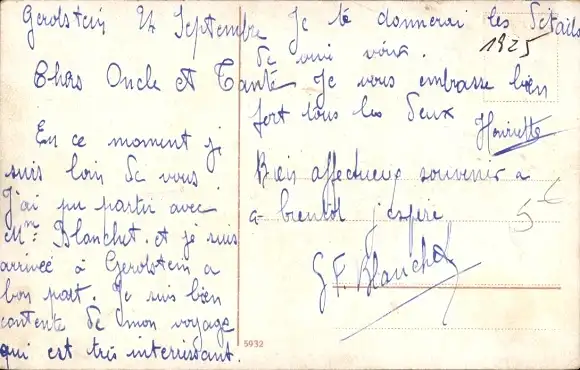 Gerolstein 24 Septembre
Chers Oncle et Tante
En ce moment j
suis loin de vous
J'ai pu partir avec
Mme Blanchet. et je suis
arrivée à Gerolstein a
bon port. Je suis bien
contente de mon voyage
qui est très interressant.
Je te donnerai les détails
de vive voix.
1925
Je vous embrasse bien
fort tous les deux
Henriette
Bien affectueux souvenir a
a bientot j'espère
G F Blanchet
5 €
5932